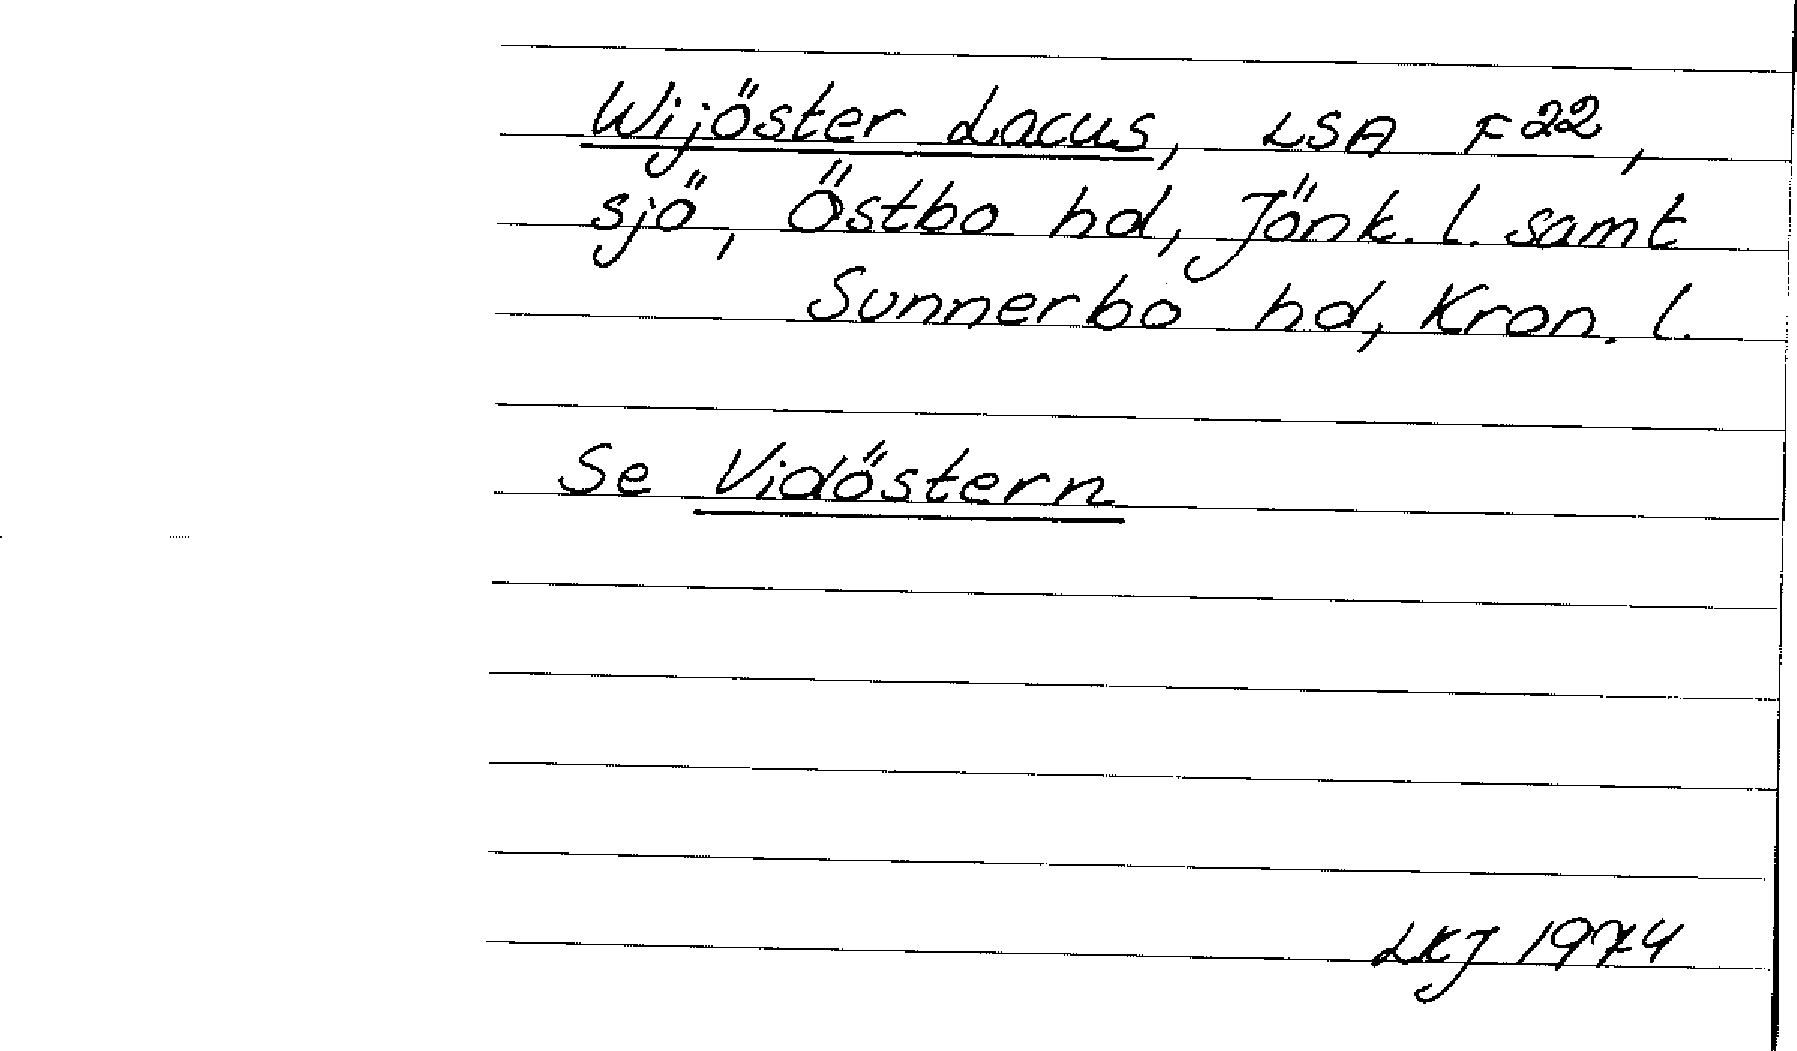 Wijöster Lacus, LSA F22,
sjö, Östbo hd, Jönk. l. samt
Sunnerbo hd, Kron. l.
Se Vidöstern
LKJ 1974